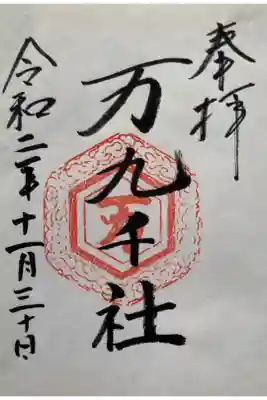 奉拝
万九千社
令和二年十一月三十日